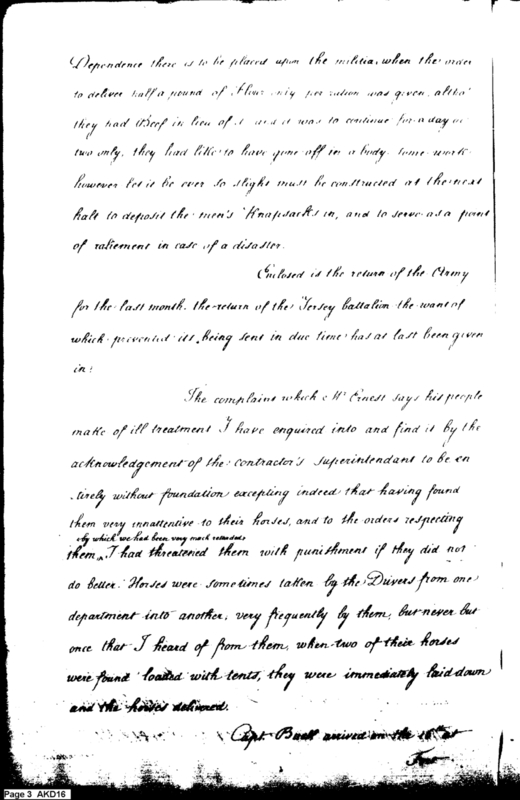 Dependence there is to be placed upon the militia, when the order
to deliver half a pound of Flour only per ration was given, altho'
they had Beef in lieu of it and it was to continue for a day or
two only, they had like to have gone off in a body. Some work
however let it be ever so slight must be constructed at the next
halt to deposit the men's Knapsacks in, and to serve as a point
of raliement in case of a disaster.
Enclosed is the return of the Army
for the last month. the return of the Jersey battalion the want of
which prevented its being sent in due time has at last been given
in.
The complaint which Mr Ernest says his people
make of ill treatment I have enquired into and find it by the
acknowledgement of the contractor's superintendant to be en
tirely without foundation excepting indeed that having found
them very innattentive to their horses, and to the orders respecting
by which we had been very much retarded,
them I had threatened them with punishment if they did not
do better. Horses were sometimes taken by the Drivers from one
department into another, very frequently by them, but never but
once that I heard of from them, when two of their horses
were found loaded with tents, they were immediately laid down
and the horses delivered.
Capt. Buell arrived on the 16th at
Fort
Page 3 AKD16